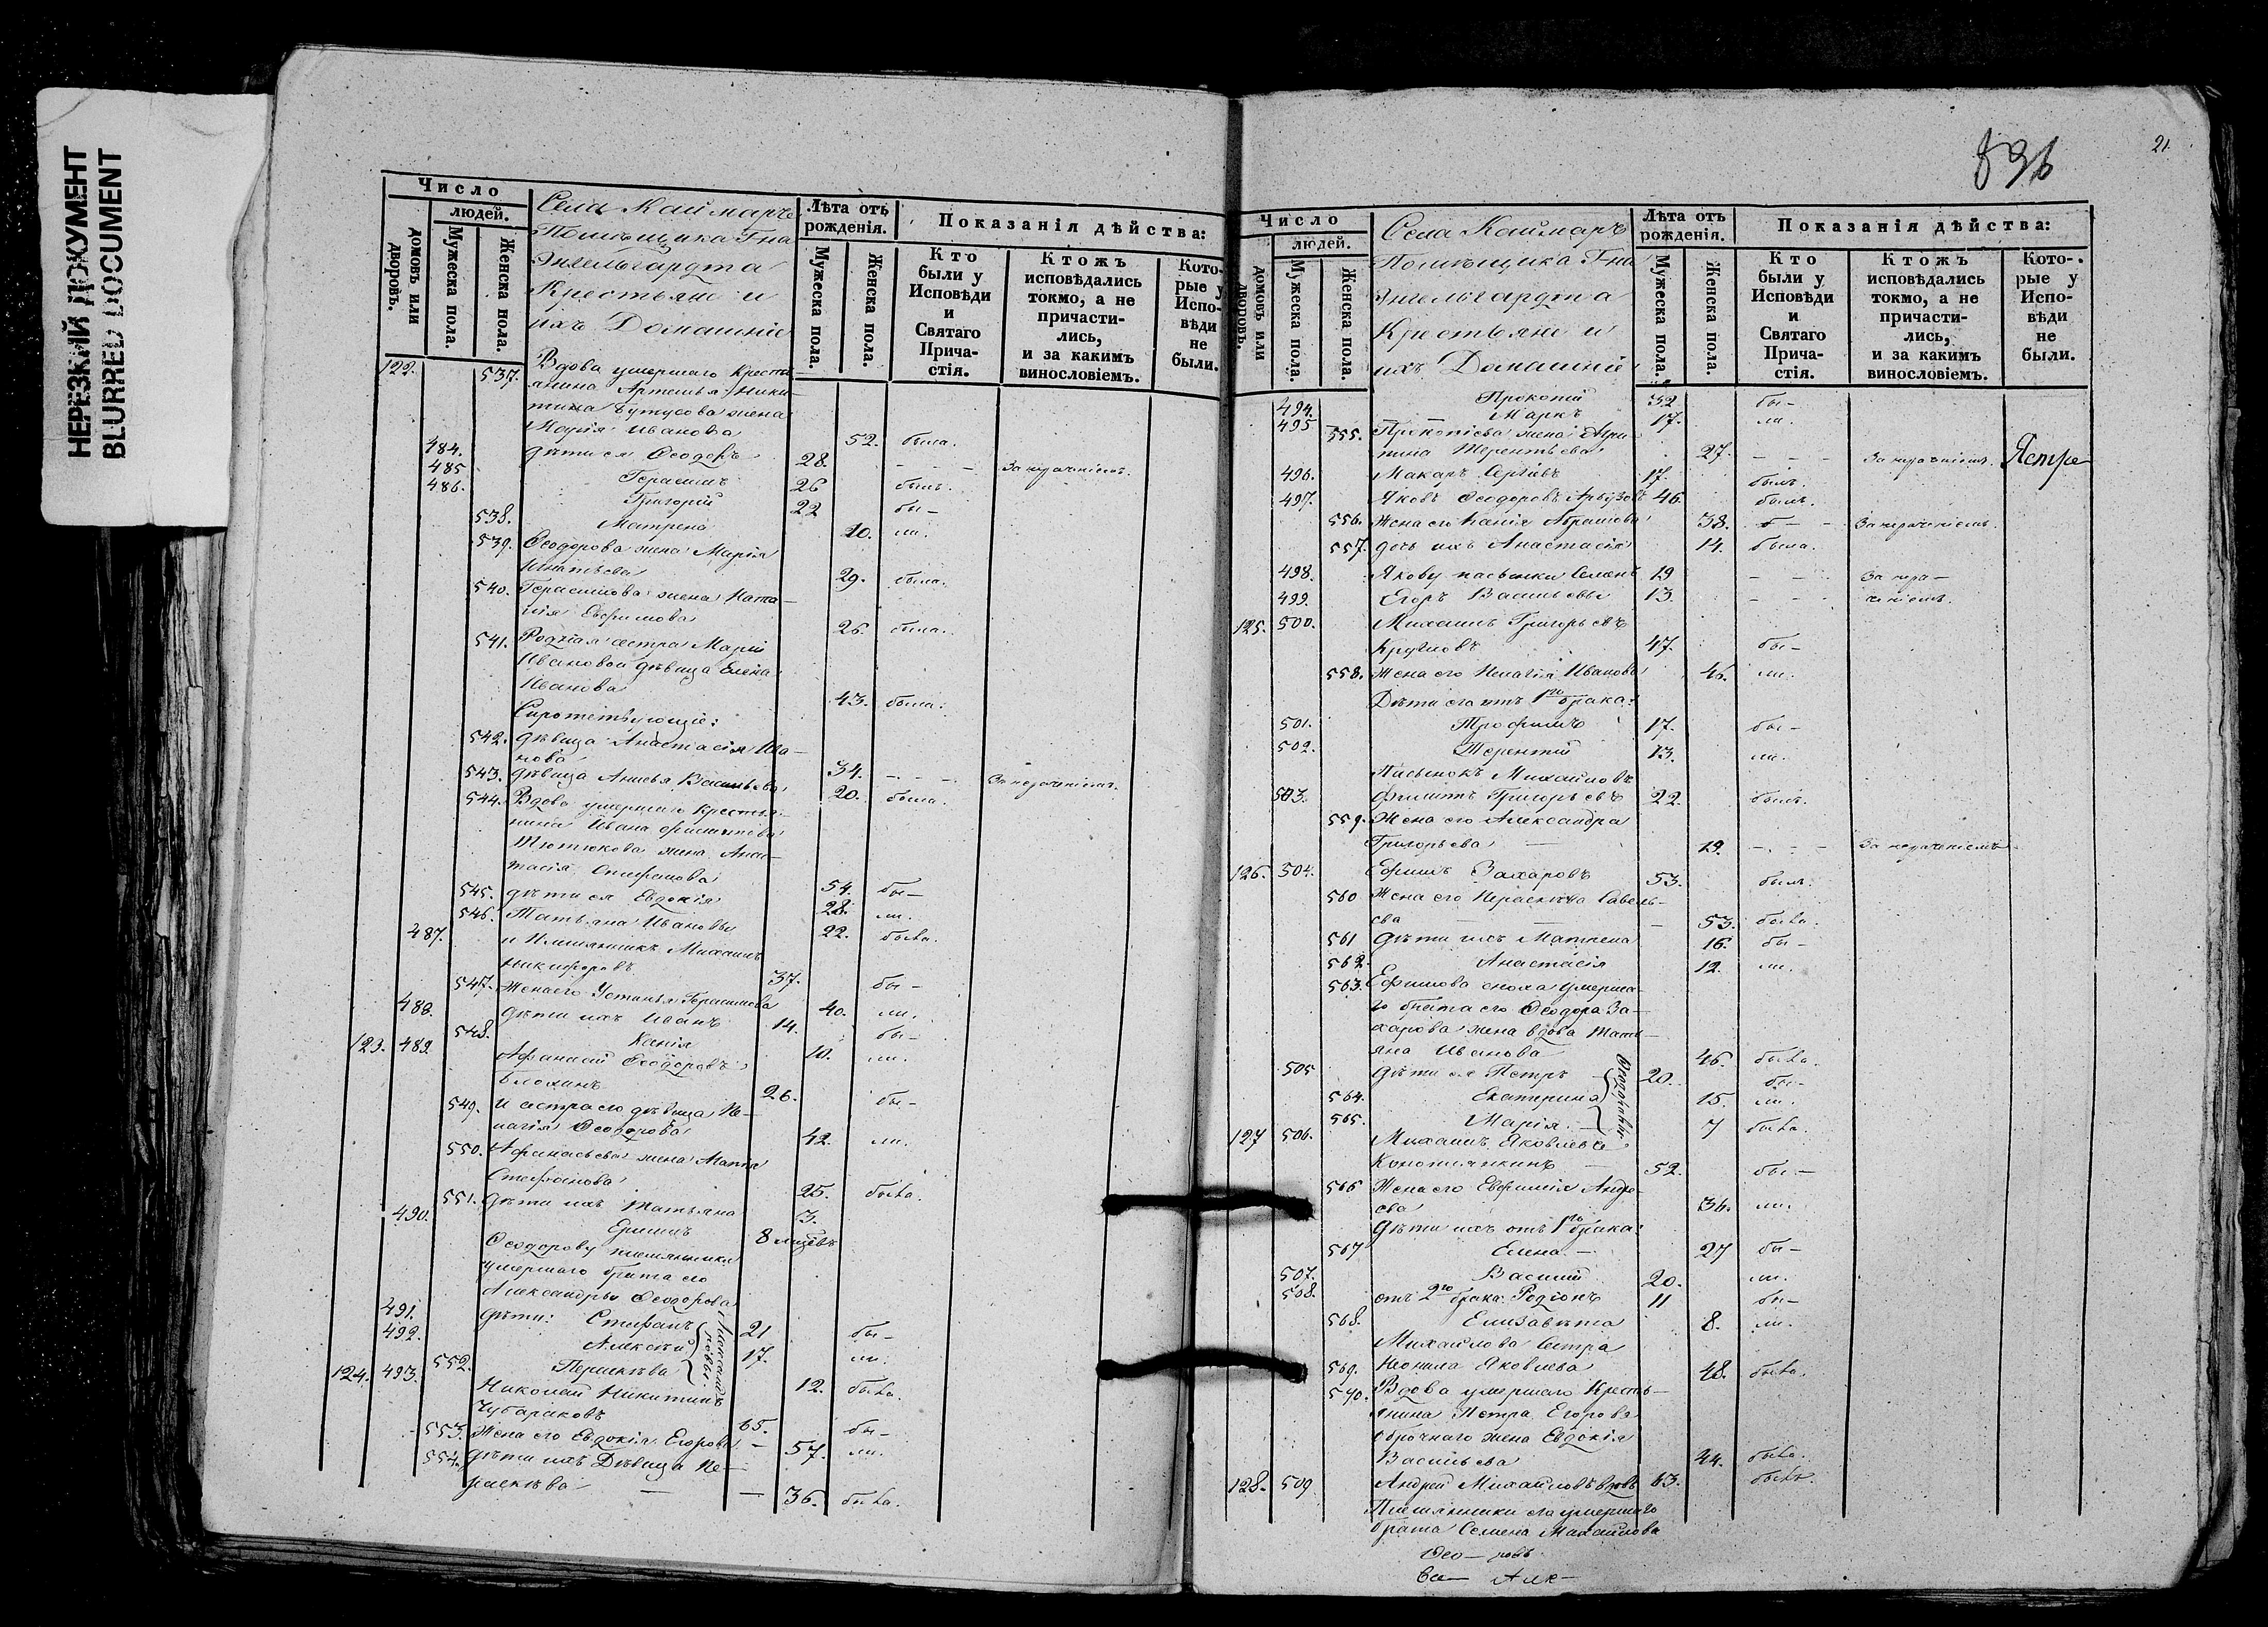 НЕРЕЗКИЙ ДОКУМЕНТ
BLURRED DOCUMENT
Число
людей.
домовъ или дворовъ.
Мужеска пола.
Женска пола.
Села Каймаръ
Помѣщика Гна
Энгельгардта
Крестьяне и
ихъ Домашніе
Лѣта отъ рожденія.
Мужеска пола.
Женска пола.
Показанія дѣйства:
Кто были у Исповѣди и Святаго Прича-стія.
Ктожъ исповѣдались токмо, а не причасти-лись, и за какимъ винословіемъ.
Кото-рые у Испо-вѣди не были.
122. 537. Вдова умершаго Кресть-
янина Артемья Ники-
тина Бутусова жена
Марія Иванова 52. была.
484. дѣти ея Ѳеодоръ 28. - - - За нераченіемъ.
485. Герасимъ 26 былъ.
486. Григорій 22 бы-
538. Матрена 20. ли.
539. Ѳеодорова жена Марія
Игнатьева 29. была.
540. Герасимова жена Ната-
лія Ефимова 26. была.
541. Родная сестра Маріи
Ивановой дѣвица Елена
Иванова 43. была.
Сиротствующіе:
542. дѣвица Анастасія Ива-
нова 34. - - - За нераченіемъ.
543. дѣвица Анисья Васильева 20. была.
544. Вдова умершаго крестья-
нина Ивана Филиппова
Тютюкова жена Анас-
тасія Стефанова 54. бы-
545. дѣти ея Евдокія 28. ли.
546. Татьяна Ивановы 22. была.
487. и Племянникъ Михаилъ
Никифоровъ 37. бы-
547. Жена его Устинья Герасимова 40. ли.
488. дѣти ихъ Иванъ 14. бы-
548. Ксенія 10. ли.
123. 489. Афанасій Ѳеодоровъ
Блохинъ 26. бы-
549. и сестра его дѣвица Пе-
лагія Ѳеодорова 42. ли.
550. Афанасьева жена Марія
Стефанова 25. была.
551. дѣти ихъ Татьяна 3.
490. Ермилъ 8 мѣсцвъ
Ѳеодорову племянники
умершаго брата его
Александра Ѳеодорова
491. дѣти: Стефанъ 21 бы-
492. Алексѣй 17. ли.
552. Перасѣева 12. была.
Александровы.
124. 493. Николай Никитинъ
Чубариковъ 65. бы-
553. Жена его Евдокія Егорова 57. ли.
554. дѣти ихъ Дѣвица Пе-
раскева 36. была.
896
21
Число
людей.
домовъ или дворовъ.
Мужеска пола.
Женска пола.
Села Каймаръ
Помѣщика Гна
Энгельгардта
Крестьяне и
ихъ Домашніе
Лѣта отъ рожденія.
Мужеска пола.
Женска пола.
Показанія дѣйства:
Кто были у Исповѣди и Святаго Прича-стія.
Ктожъ исповѣдались токмо, а не причасти-лись, и за какимъ винословіемъ.
Кото-рые у Испо-вѣди не были.
494. Прокопій 32 бы-
495 Маркъ 17. ли.
555. Прокопіева жена Ири-
на Терентьева 27. - - - За нераченіемъ.
496. Макаръ Сергѣевъ 17. былъ.
497. Яковъ Ѳеодоровъ Арбузовъ 46. былъ.
556. Жена его Ксенія Абрамова 38. б - - За нераченіемъ.
557. дочь ихъ Анастасія 14. была.
498. Якову пасынки Семенъ 19 - - За нера-
499. Егоръ Васильевы 13. - - - ченіемъ.
125. 500. Михаилъ Григорьевъ
Кругловъ 47. бы-
558. Жена его Пелагія Иванова 46. ли.
Дѣти его отъ 1го брака:
501. Трофимъ 17. бы-
502. Терентій 13. ли.
Пасынокъ Михайловъ
503. Филиппъ Григорьевъ 22. былъ.
559. Жена его Александра
Григорьева 19. - - - За нераченіемъ
126. 504. Ефимъ Захаровъ 53. былъ.
560 Жена его Пераскева Савель-
ева 53. была.
561 дѣти ихъ Матрена 16. бы-
562. Анастасія 12. ли.
563. Ефимова сноха умерша-
го брата его Ѳеодора За-
харова жена вдова Тать-
яна Иванова 46. была.
505 дѣти ея Петръ 20. бы-
564. Екатерина 15. ли.
565. Марія 7 была.
Ѳеодоровы.
127 506. Михаилъ Яковлевъ
Коноплянкинъ 52. бы-
566 Жена его Евфимія Андре-
ева 36. ли.
дѣти ихъ отъ 1го брака:
567 Елена 27 бы-
507. Василій 20. ли.
508. отъ 2го брака Родіонъ 11 бы-
568. Елизавета 8. ли.
Михайлова Сестра
569. Неонила Яковлева 48. была.
570. Вдова умершаго Кресть-
янина Петра Егорова
Оброчнаго жена Евдокія
Васильева 44. была.
128. 509 Андрей Михайловъ вдовъ 63. былъ.
Племянники его умершаго
брата Семена Михайлова